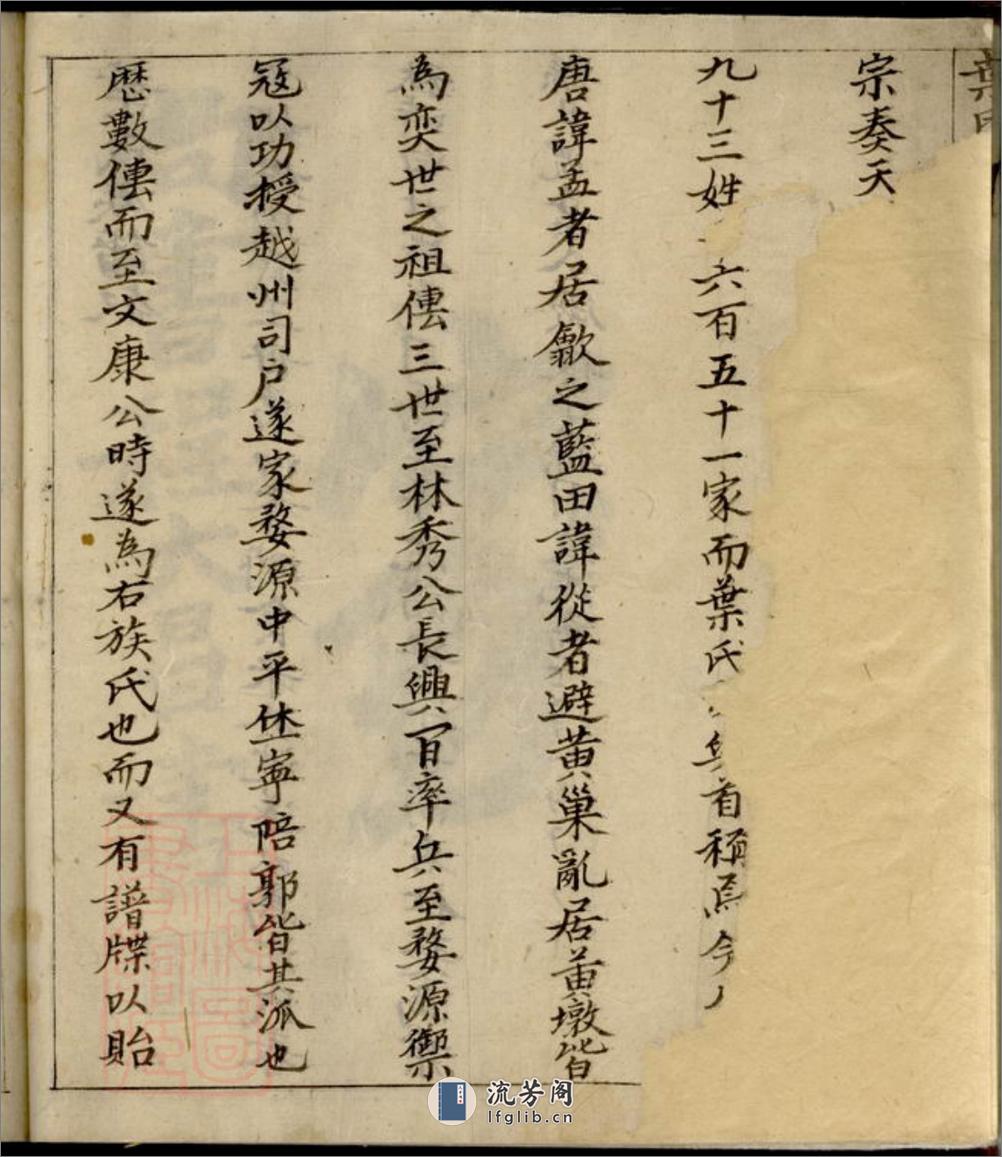 葉氏
宗奏天
九十三姓六百五十一家而葉氏首稱焉今
唐諱孟者居歙之藍田諱從者避黄巢亂居黃墩皆
為奕世之祖傳三世至林秀公長興一百率兵至婺源禦
冦以功授越州司户遂家婺源中平休寧陪郭皆其派也
歴數傳而至文康公時遂為右族氏也而又有譜牒以貽
流芳阁
lfglib.cn